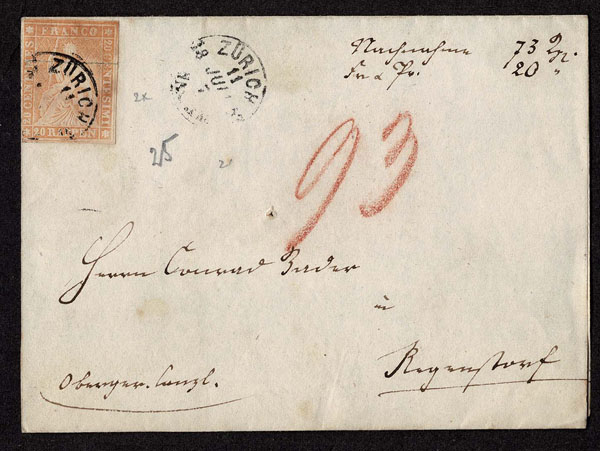 FRANCO
20 RAPPEN
ZÜRICH
11
ZÜRICH
11
28 JUL
Nachnahme 73
Fr & Pr. 20 "
2x
25
93
Herrn Conrad Bader
in
Regenstorf
Oberger. Canzl.